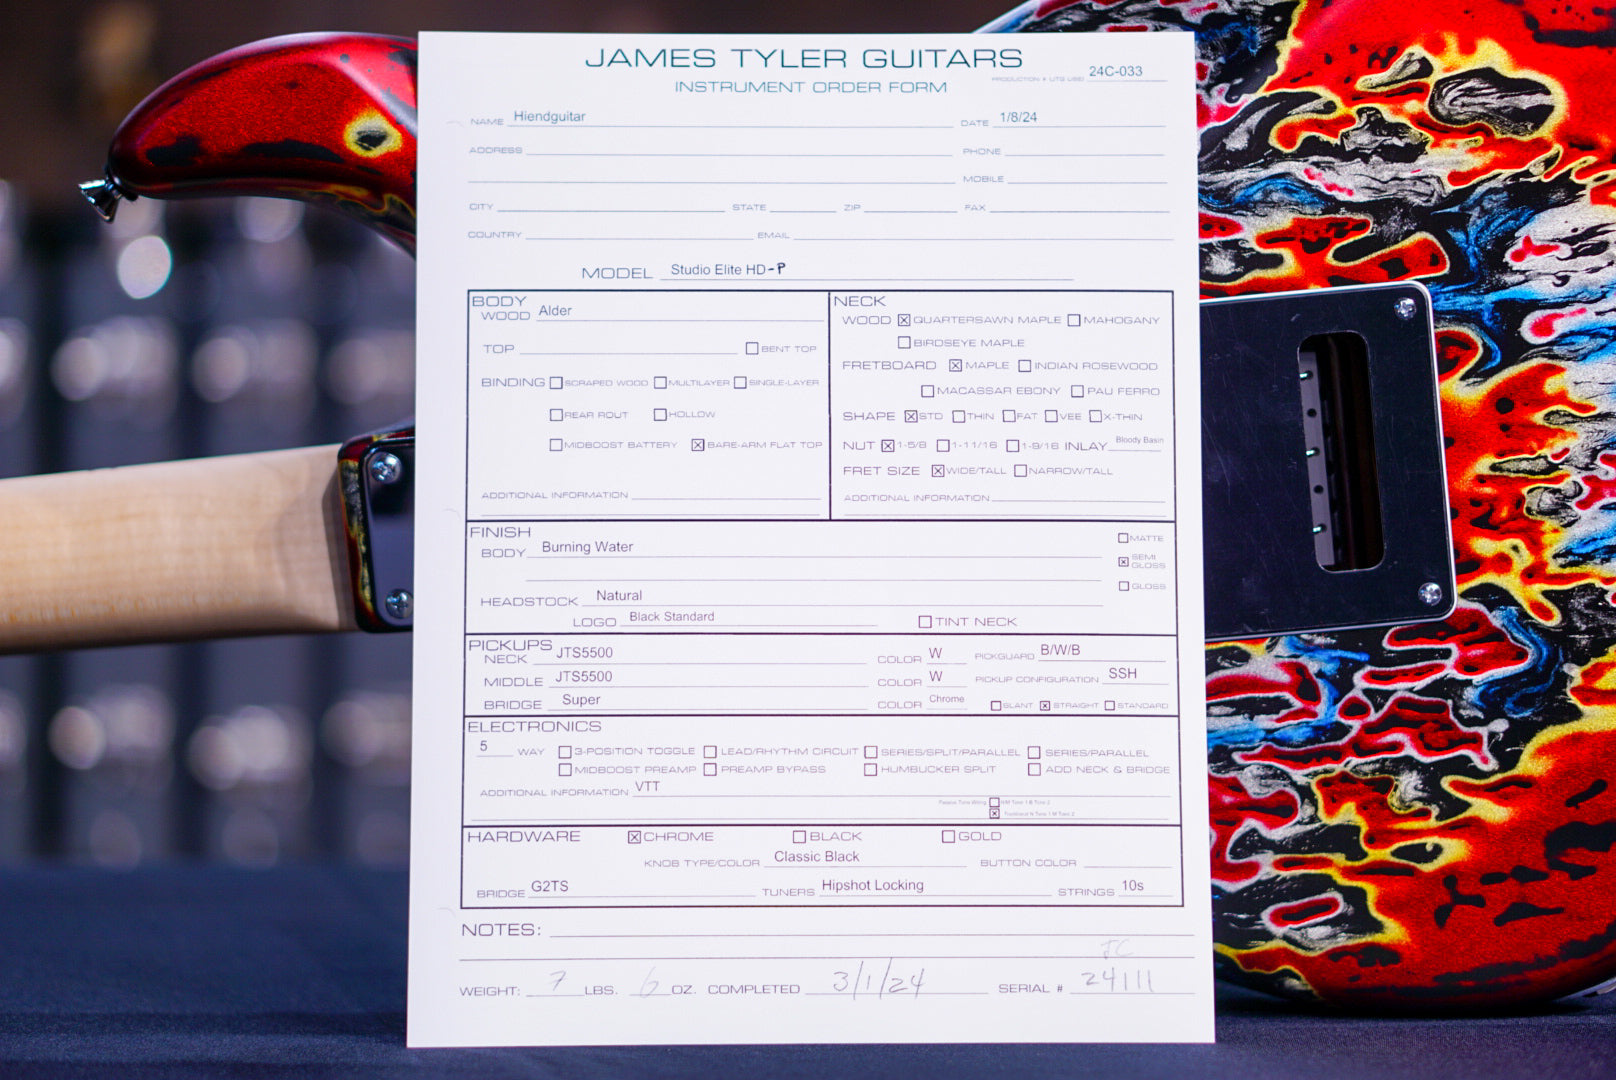 JAMES TYLER GUITARS
INSTRUMENT ORDER FORM
PRODUCTION # (JTG USE) 24C-033
NAME Hiendguitar DATE 1/8/24
ADDRESS PHONE
MOBILE
CITY STATE ZIP FAX
COUNTRY EMAIL
MODEL Studio Elite HD-P
BODY
WOOD Alder
TOP BENT TOP
BINDING SCRAPED WOOD MULTILAYER SINGLE-LAYER
REAR ROUT HOLLOW
MIDBOOST BATTERY ☒ BARE-ARM FLAT TOP
ADDITIONAL INFORMATION
NECK
WOOD ☒ QUARTERSAWN MAPLE ☐ MAHOGANY
☐ BIRDSEYE MAPLE
FRETBOARD ☒ MAPLE ☐ INDIAN ROSEWOOD
☐ MACASSAR EBONY ☐ PAU FERRO
SHAPE ☒ STD ☐ THIN ☐ FAT ☐ VEE ☐ X-THIN
NUT ☒ 1-5/8 ☐ 1-11/16 ☐ 1-9/16 INLAY Bloody Basin
FRET SIZE ☒ WIDE/TALL ☐ NARROW/TALL
ADDITIONAL INFORMATION
FINISH
BODY Burning Water
☐ MATTE
☒ SEMI GLOSS
☐ GLOSS
HEADSTOCK Natural
LOGO Black Standard ☐ TINT NECK
PICKUPS
NECK JTS5500 COLOR W PICKGUARD B/W/B
MIDDLE JTS5500 COLOR W PICKUP CONFIGURATION SSH
BRIDGE Super COLOR Chrome ☐ SLANT ☒ STRAIGHT ☐ STANDARD
ELECTRONICS
5 WAY ☐ 3-POSITION TOGGLE ☐ LEAD/RHYTHM CIRCUIT ☐ SERIES/SPLIT/PARALLEL ☐ SERIES/PARALLEL
☐ MIDBOOST PREAMP ☐ PREAMP BYPASS ☐ HUMBUCKER SPLIT ☐ ADD NECK & BRIDGE
ADDITIONAL INFORMATION VTT
Passive Tone Wiring ☐ N/M Tone 1 B Tone 2
☒ Traditional N Tone 1 M Tone 2
HARDWARE ☒ CHROME ☐ BLACK ☐ GOLD
KNOB TYPE/COLOR Classic Black BUTTON COLOR
BRIDGE G2TS TUNERS Hipshot Locking STRINGS 10s
NOTES:
JC
WEIGHT: 7 LBS. 6 OZ. COMPLETED 3/1/24 SERIAL # 24111